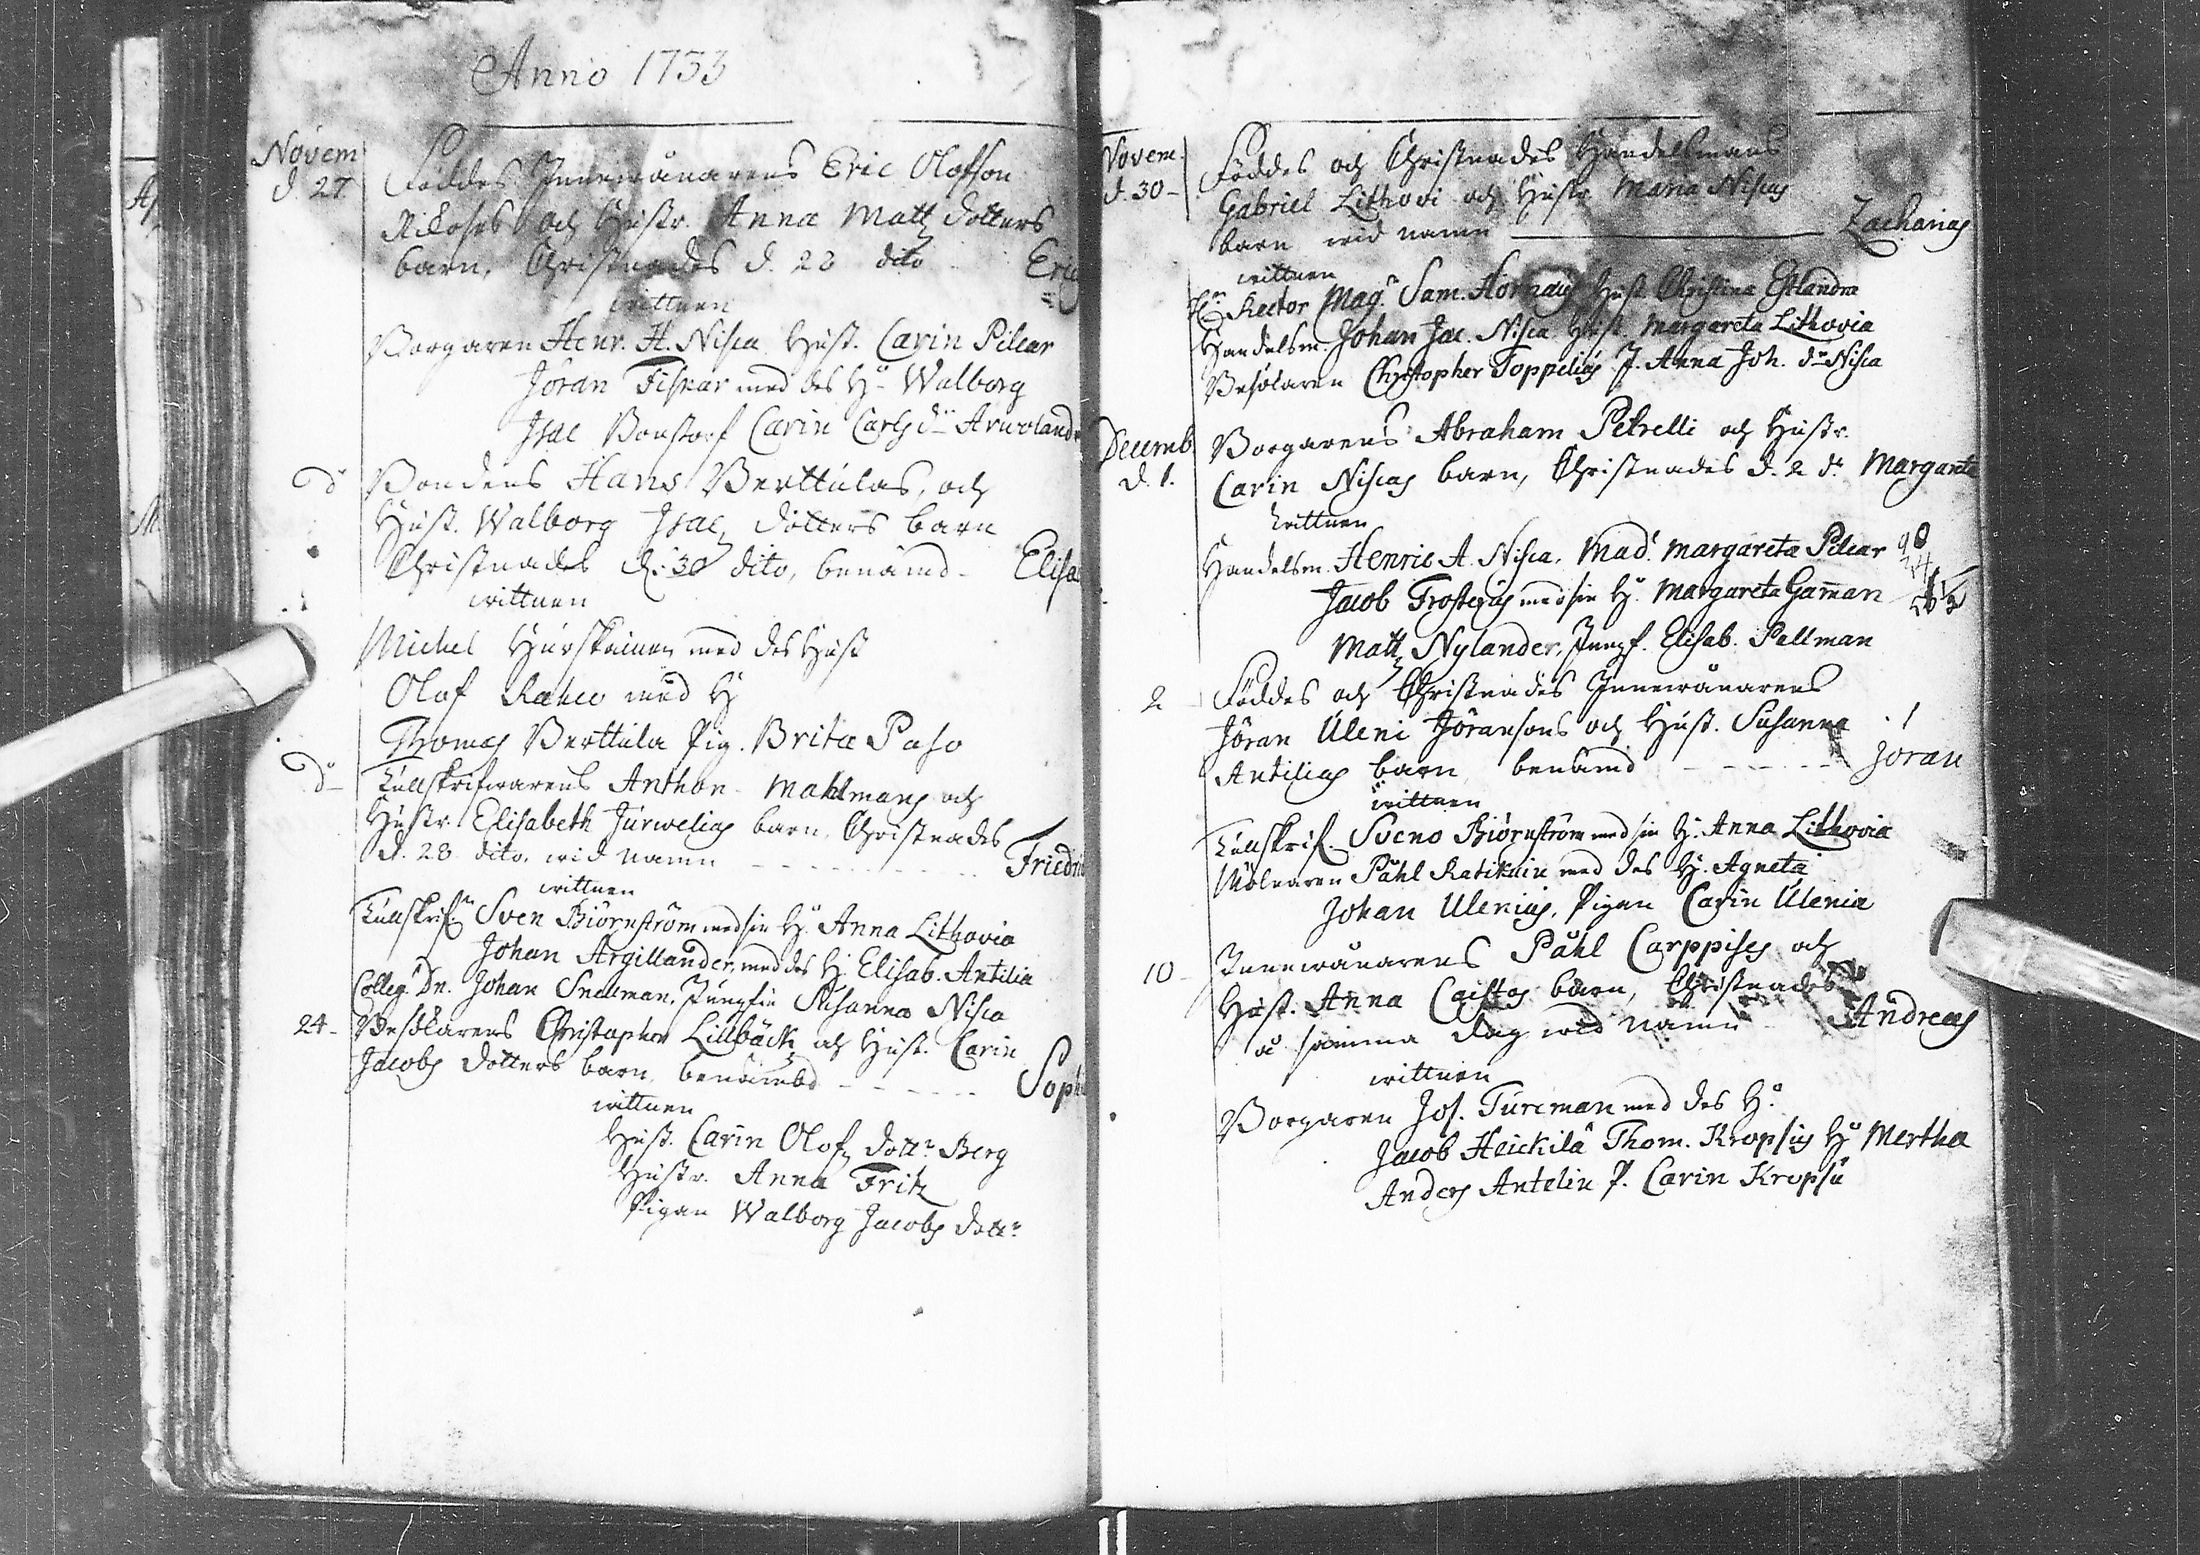 Anno 1733
Novem
d. 27
Föddes Innewånarens Eric Olofson
och Hustr. Anna Matts dotters
barn, Christnades d. 28 dito Eric
wittnen
Borgaren Henr. H. Nisca Hust. Carin Pilcar
Jöran Fiskar med des Hu Walborg
Isac Bonstorf Carin Carls dr
do Bondens Hans Berttulas, och
Hust. Walborg Isacs dotters barn
Christnades d. 30 dito, benämd Elisa
wittnen
Michel Hurskainen med des Hust
Olof med H
Thomas Berttula Pig. Brita Paso
do Tullskrifwarens Anthon Mahlmans och
Hustr. Elisabeth Jurwelias barn, Christnades
d. 28 dito, wid namn Friedri
wittnen
Tullskrifn Sven Biörnström med sin Hu Anna Lithovia
Johan Argillander, med des H. Elisab. Antilia
Colleg. Dn. Johan Snelman, Jungfru Susanna Nisca
24 Besökarens Christopher Lillbäck och Hust. Carin
Jacobs dotters barn, benämbd Soph
wittnen
Hust. Carin Olofs dottr Berg
Hustr. Anna Fritz
Pigan Walborg Jacobs dottr
Novem.
d. 30
Föddes och Christnades Handelsmans
Gabriel Lithovi och Hustr Maria Niscas
barn wid namn Zacharias
wittnen
Hr Rector Mag. Sam. Hornæus Hust. Christina Estlandra
Handelsm. Johan Jac. Nisca Hust. Margareta Lithovia
Besökaren Christopher Toppelius J. Anna Joh. dr Nisca
Decemb.
d. 1.
Borgarens Abraham Petrelli och Hustr.
Carin Niscas barn, Christnades d. 2 do Margareta
wittnen
Handelsm. Henric A. Nisca, Mad. Margareta Pilcar
Jacob Frosterus med sin H. Margareta Gam̄an
Matts Nylander, Jungf. Elisab. Pallman
2 Föddes och Christnades Innewånarens
Jöran Uleni Jöransons och Hust. Susanna
Antilias barn benämd Jöran
wittnen
Tullskrif. Sveno Biörnström med sin H. Anna Lithovia
Målaren Påhl Ratikain med des H. Agneta
Johan Ulenius, Pigan Carin Ulenia
10 Innewånarens Påhl Carppises och
Hust. Anna Caistas barn, Christnades
å samma dag wid namn Andreas
wittnen
Borgaren Jos. Turcman med des Hu
Jacob Heickilä Thom. Kropsus Hu Mertha
Anders Antelin P. Carin Kropsu